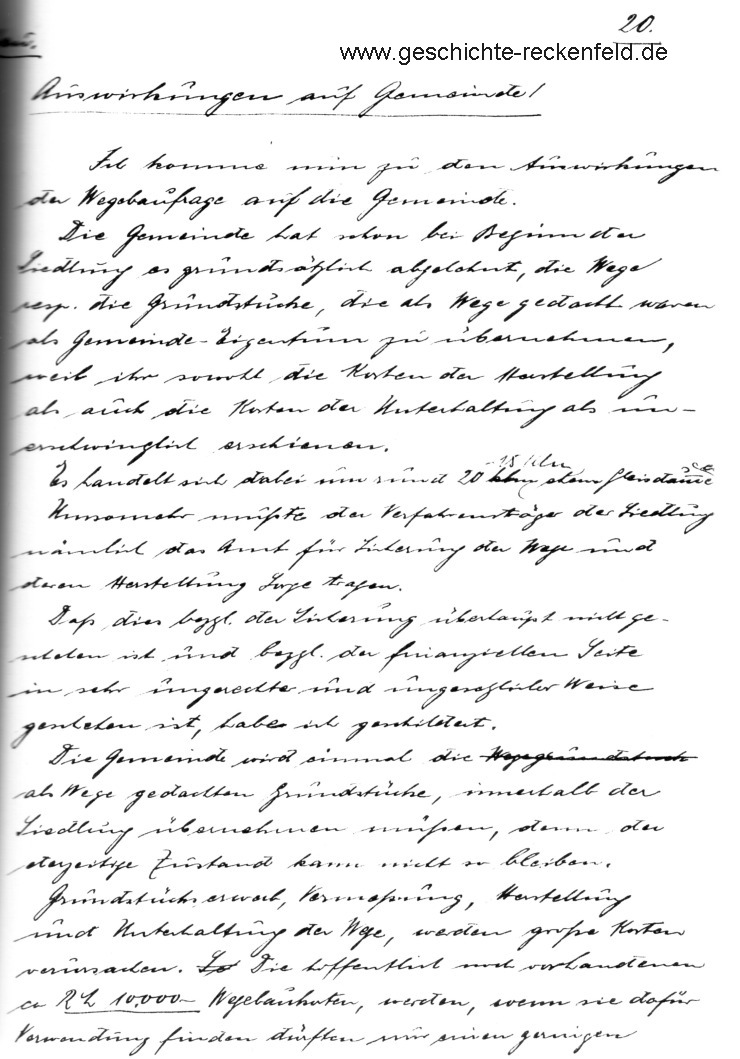 20.
www.geschichte-reckenfeld.de
Auswirkungen auf Gemeinde!
Ich komme nun zu den Auswirkungen
der Wegebaufrage auf die Gemeinde.
Die Gemeinde hat schon bei Beginn der
Siedlung es grundsätzlich abgelehnt, die Wege
resp. die Grundstücke, die als Wege gedacht waren
als Gemeinde-Eigentum zu übernehmen,
weil ihr sowohl die Kosten der Herstellung
als auch die Kosten der Unterhaltung als un-
erschwinglich erschienen.
15 klm
Es handelt sich dabei um rund 20 klm ehem Gleisdämme
Umsomehr müßte der Verfahrensträger der Siedlung
nämlich das Amt für Sicherung der Wege und
deren Herstellung Sorge tragen.
Daß dies bezgl. der Sicherung überhaupt nicht ge-
schehen ist und bezgl. der finanziellen Seite
in sehr ungerechter und ungesetzlicher Weise
geschehen ist, habe ich geschildert.
Die Gemeinde wird einmal die Wegegrundstück
als Wege gedachten Grundstücke, innerhalb der
Siedlung übernehmen müßen, denn der
derzeitige Zustand kann nicht so bleiben.
Grundstückserwerb, Vermeßung, Herstellung
und Unterhaltung der Wege, werden große Kosten
verursachen. So Die hoffentlich noch vorhandenen
ca 10.000- Wegebaukosten, werden, wenn sie dafür
Verwendung finden dürften nur einen geringen